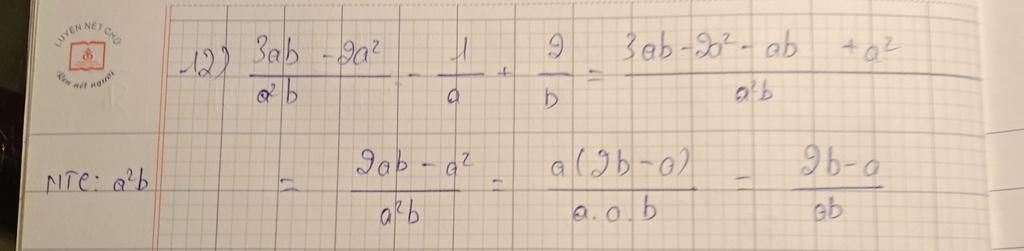 LUYỆN NÉT CHỮ
Rèn nết người
12) \frac{3ab - 2a²}{a²b} - \frac{1}{a} + \frac{2}{b} = \frac{3ab - 2a² - ab + a²}{a²b}
MTC: a²b = \frac{2ab - a²}{a²b} = \frac{a(2b - a)}{a.a.b} = \frac{2b - a}{ab}